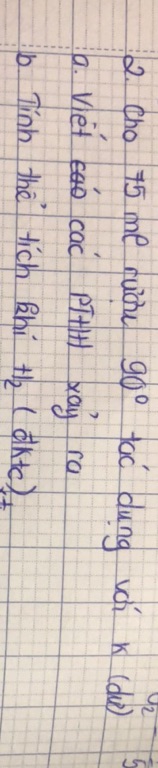 2. Cho 75 ml rượu 90° tác dụng với K (dư)
a. Viết các PTHH xảy ra
b. Tính thể tích khí H₂ (đktc)